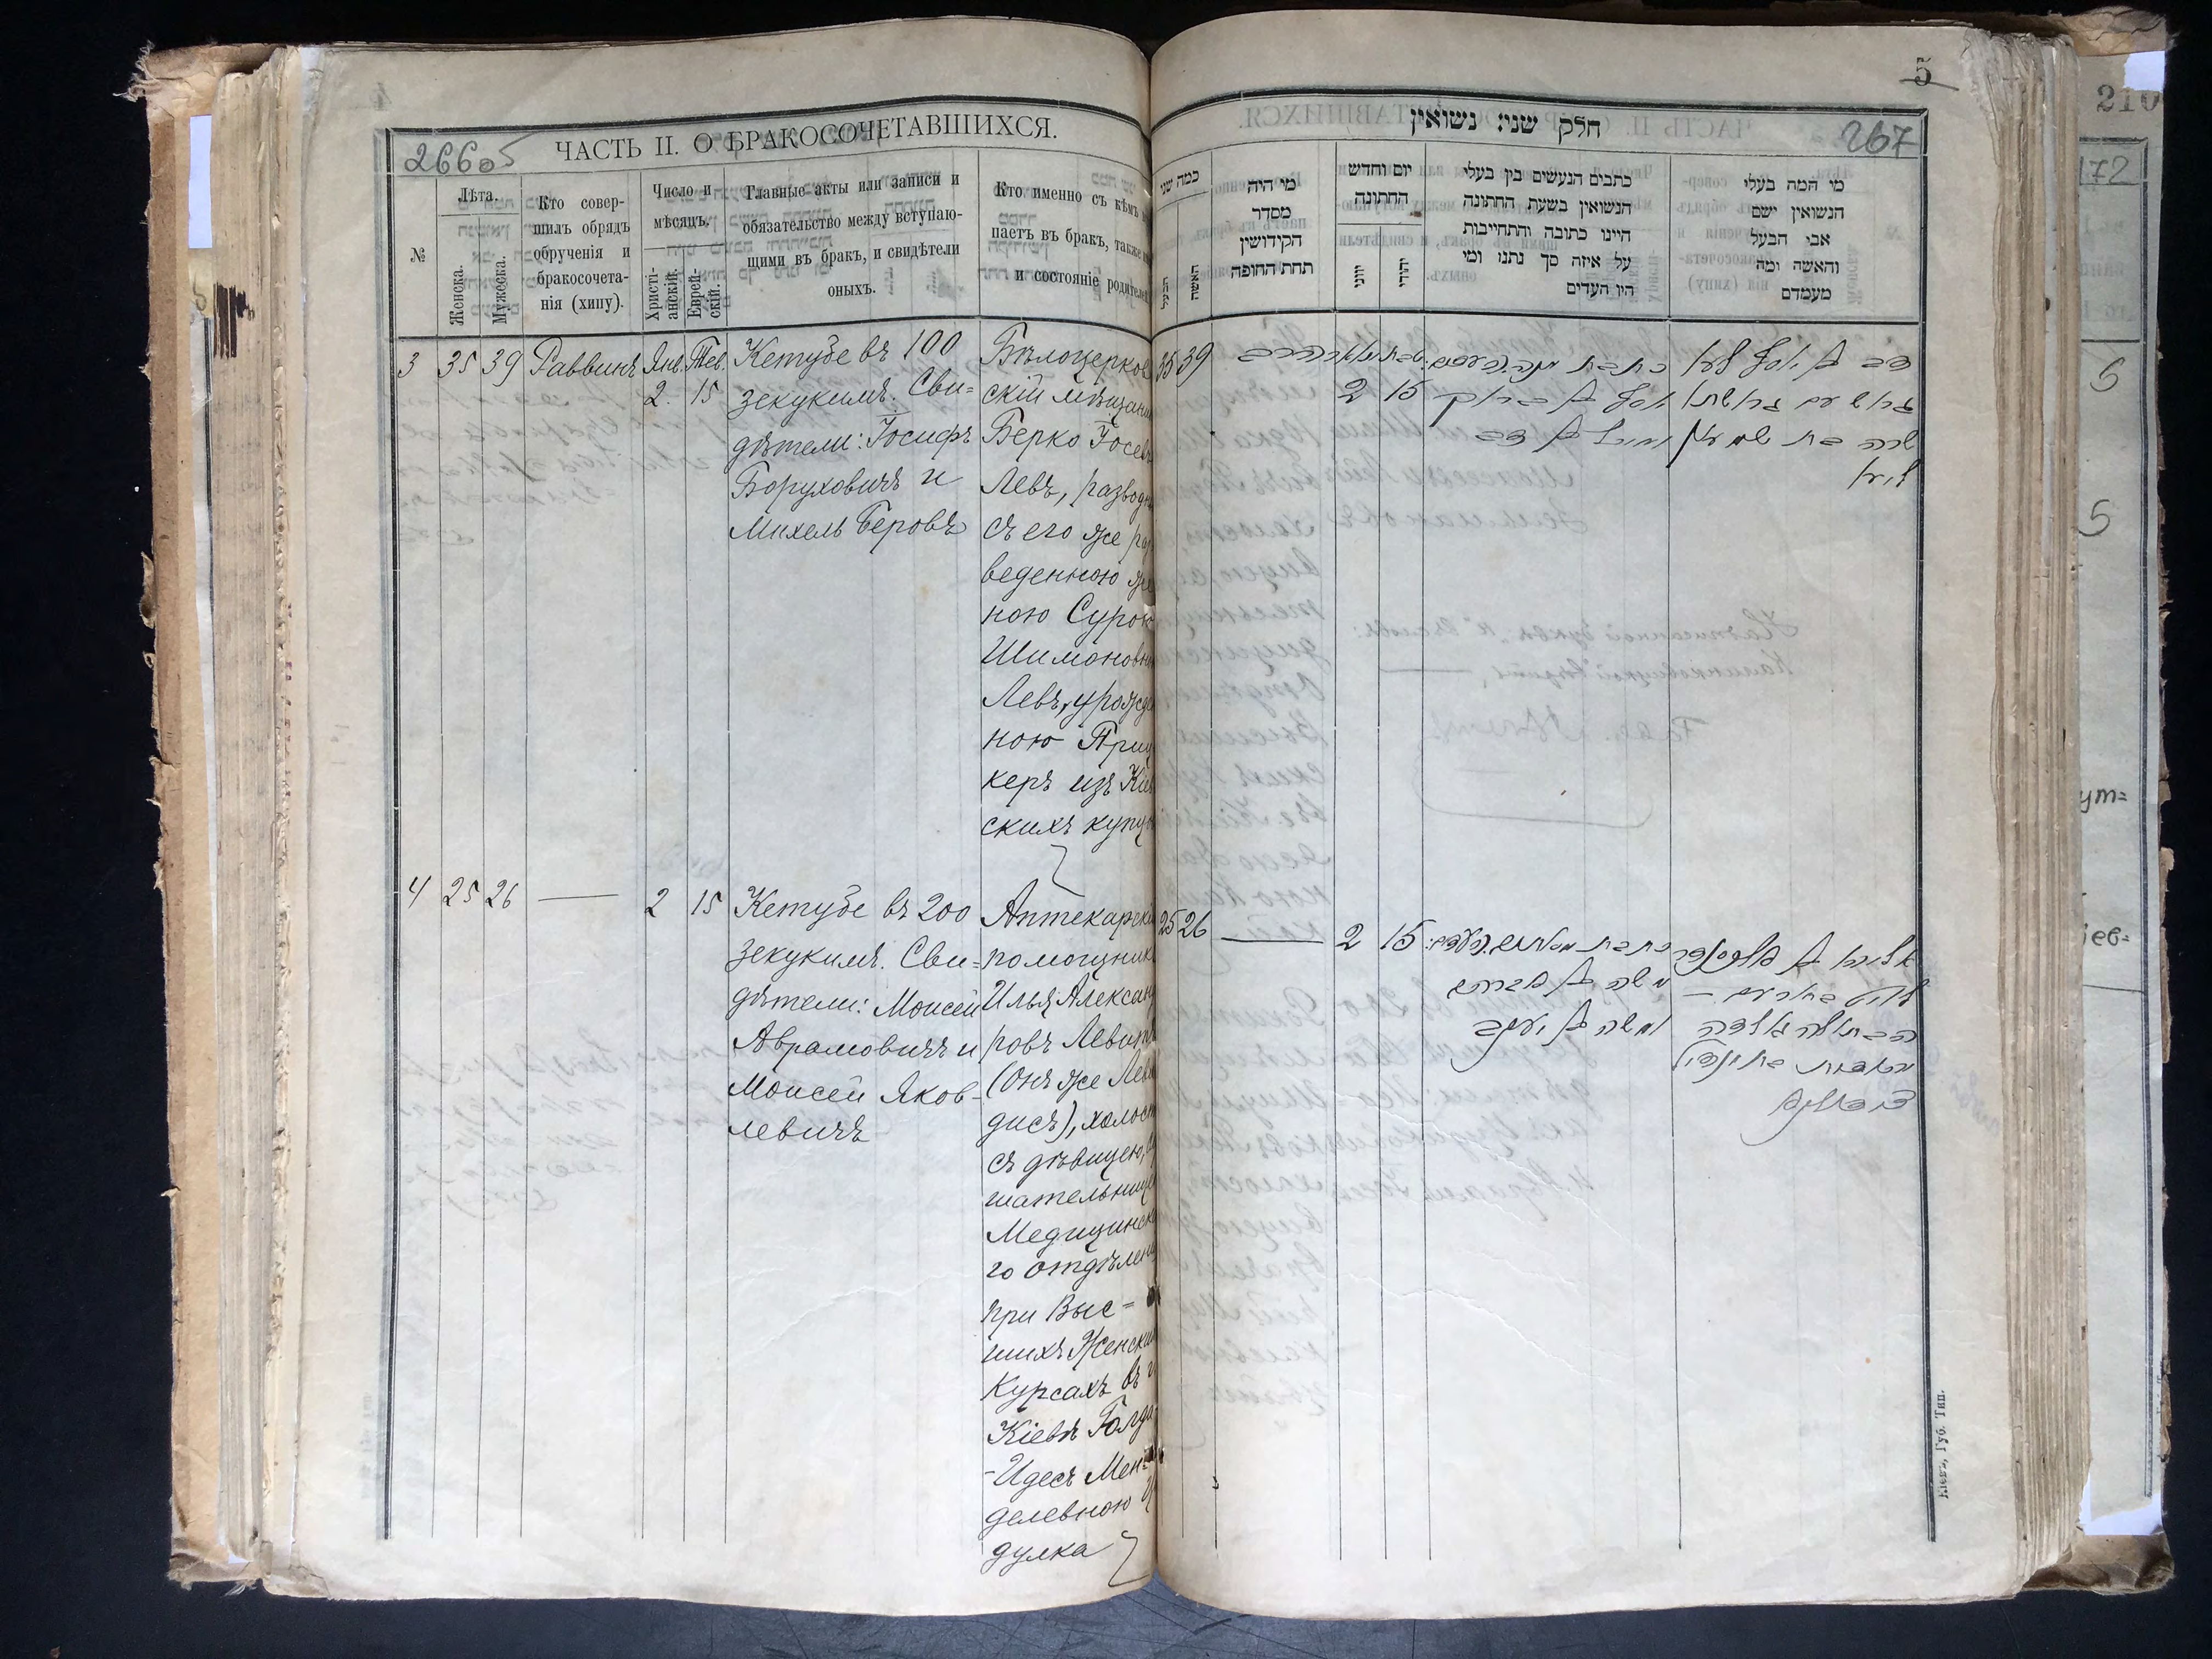 ЧАСТЬ II. О БРАКОСОЧЕТАВШИХСЯ.
266об
№
Лѣта.
Женска.
Мужеска.
Кто совер-
шилъ обрядъ
обрученія и
бракосочета-
нія (хипу).
Число и
мѣсяцъ.
Христі-
анскій.
Еврей-
скій.
Главные акты или записи и
обязательство между вступаю-
щими въ бракъ, и свидѣтели
оныхъ.
Кто именно съ кѣмъ
паетъ въ бракъ, также
и состояніе родител
3 35 39 Раввинъ Янв. Тев.
2. 15
Кетубе въ 100
зекукимъ. Сви=
дѣтели: Іосифъ
Боруховичъ и
Михель Беровъ
Бѣлоцерков
скій мѣщани
Берко Іосев
Левъ, развод
съ его же ра
веденною же
ною Сурою
Шимоновн
Левъ, урожде
ною Приц
керъ изъ Кіе
скихъ купц
4 25 26 — 2 15
Кетубе въ 200
зекукимъ. Сви=
дѣтели: Моисей
Аврамовичъ и
Моисей Яков-
левичъ
Аптекарскі
помощник
Илья Алексан
ровъ Левит
(Онъ же Лев
дисъ), холост
съ дѣвицею,
шательниц
Медицинск
го отдѣлен
при Выс=
шихъ Женски
Курсахъ въ
Кіевѣ Голда
-Идесъ Мен=
делевною
дулка
5
חלק שני: נשואין
267
כמה שני
הבעל
האשה
מי היה
מסדר
הקידושין
תחת החופה
יום וחדש
החתונה
יוני
יהודי
כתבים הנעשים בין בעלי
הנשואין בשעת החתונה
היינו כתובה והתחייבות
על איזה סך נתנו ומי
היו העדים
מי המה בעלי
הנשואין ושם
אבי הבעל
והאשה ומה
מעמדם
35 39
2 15
דב ב יוסף לעוו
גרוש עם גרושתו
שרה בת שמעון
יוסף ב ברוך
25 26 — 2 15
משה ב אברהם
ומשה ב יעקב
Кіевъ, Губ. Тип.
210
172
5
5
ут=
іев=